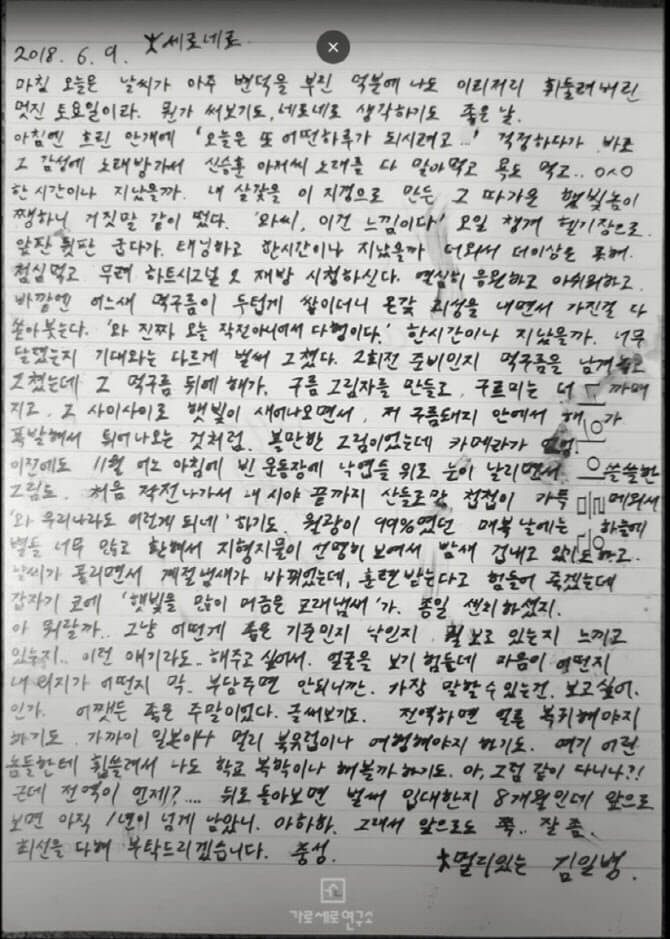 2018. 6. 9. 세로네로
마침 오늘은 날씨가 아주 변덕을 부린 덕분에 나도 이리저리 휘둘려버린
멋진 토요일이라. 뭔가 써보기도, 세로네로 생각하기도 좋은 날.
아침엔 흐린 안개에 '오늘은 또 어떤하루가 되시려고...' 걱정하다가 바로
그 감성에 노래방가서 신승훈 아저씨 노래를 다 말아먹고 욕도 먹고.. 0ㅅ0
한시간이나 지났을까. 내 살갗을 이 지경으로 만든 그 따가운 햇빛놈이
쨍하니 거짓말 같이 떴다. '와씨, 이건 느낌이다' 오일 챙겨 헬기장으로.
앞판 뒷판 굽다가. 태닝하고 한시간이나 지났을까 더워서 더이상은 못해.
점심먹고 무려 하트시그널 2 재방 시청하신다. 열심히 응원하고 아쉬워하고.
바깥엔 어느새 먹구름이 두텁게 쌓이더니 온갖 괴성을 내면서 가진걸 다
쏟아붓는다. '와 진짜 오늘 작전아니어서 다행이다.' 한시간이나 지났을까. 너무
닫혔는지 기대와는 다르게 벌써 그쳤다. 2회전 준비인지 먹구름을 남겨놓고
그쳤는데 그 먹구름 뒤에 해가. 구름 그림자를 만들고, 구르미는 더 까매
지고. 그 사이사이로 햇빛이 새어나오면서, 저 구름돼지 안에서 해가
폭발해서 튀어나오는 것처럼. 볼만한 그림이었는데 카메라가 없엉
이전에도 11월 어느 아침에 빈 운동장에 낙엽들 위로 눈이 날리면서 쓸쓸한
그림도. 처음 작전나가서 내 시야 끝까지 산들로만 첩첩이 가득 메워서
'와 우리나라도 이렇게 되네' 하기도. 월광이 99%였던 매복날에는 하늘에
별들 너무 많고 환해서 지형지물이 선명히 보여서 밤새 겁내고 있기도하고.
날씨가 풀리면서 계절냄새가 바뀌었는데, 훈련받는다고 힘들어 죽겠는데
갑자기 코에 '햇빛을 많이 머금은 모래냄새'가. 종일 센치하셨지.
아 뭐랄까.. 그냥 어떤게 좋은 기준인지 낙인지 뭘 보고 있는지 느끼고
있는지.. 이런 얘기라도.. 해주고 싶어서. 얼굴을 보기 힘든데 마음이 어떤지
내 의지가 어떤지 막.. 부담주면 안되니깐. 가장 말할수있는건. 보고싶어.
인가. 어쨋든 좋은 주말이었다. 글써보기도. 전역하면 얼른 복귀해야지
하기도. 가까이 일본이나 멀리 북유럽이나 여행해야지 하기도. 여기 어린
놈들한테 휩쓸려서 나도 학교 복학이나 해볼까 하기도. 아, 그럼 같이 다니나?!
근데 전역이 언제?.... 뒤로 돌아보면 벌써 입대한지 8개월인데 앞으로
보면 아직 1년이 넘게 남았니. 아하하. 그래서 앞으로도 쭉.. 잘 좀.
최선을 다해 부탁드리겠습니다. 충성.
멀리있는 김일병.
가로세로연구소